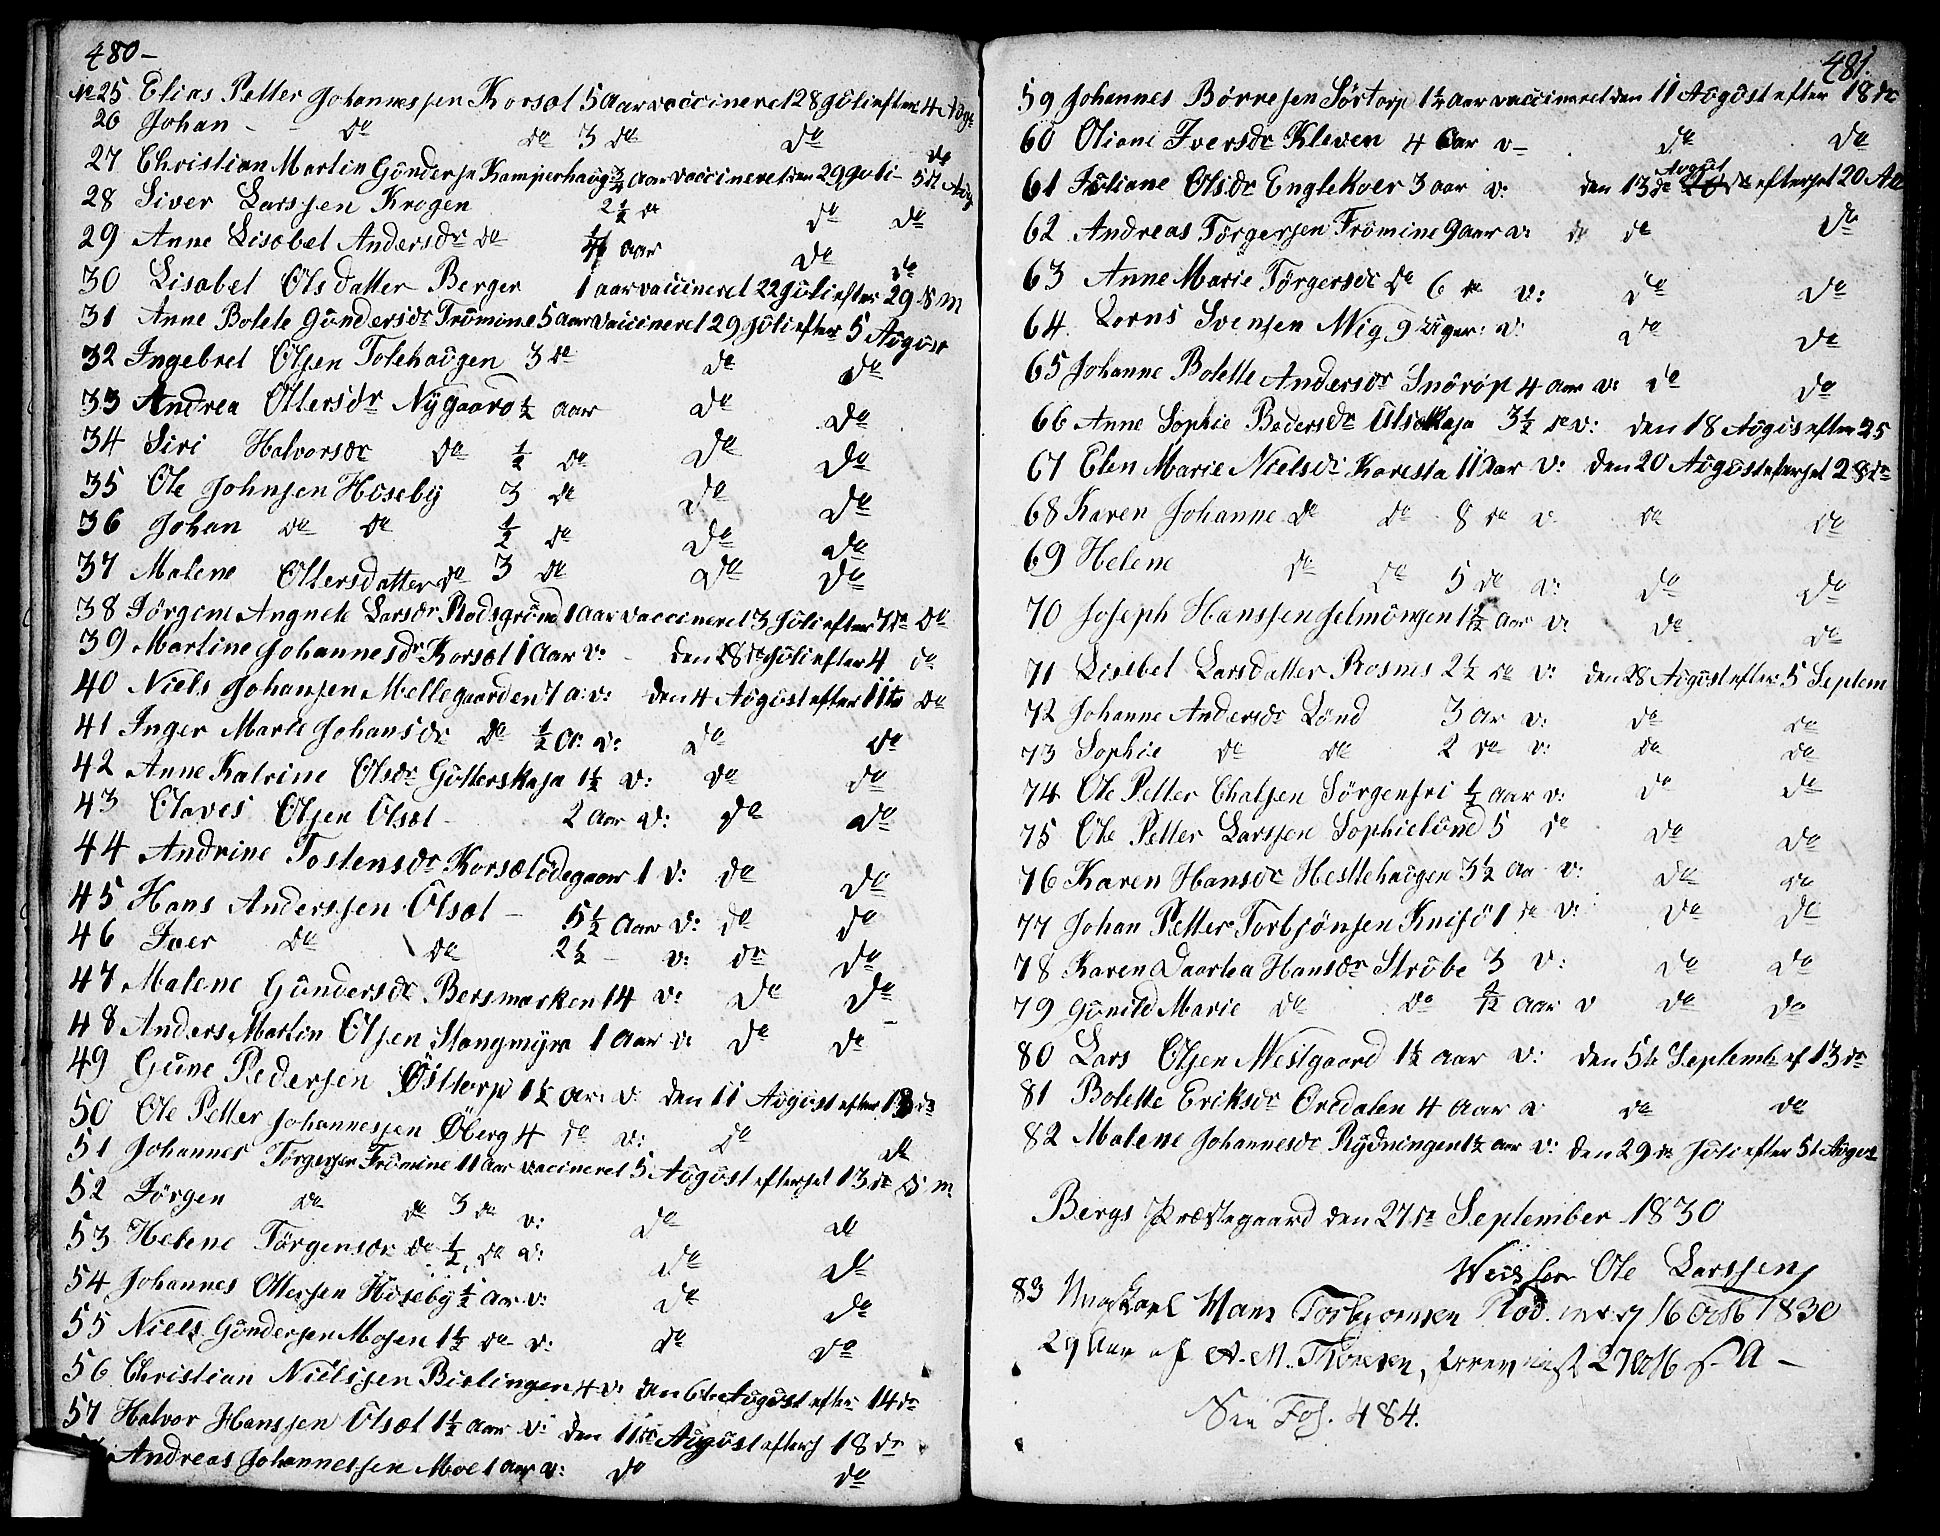 480-
No 25 Elias Petter Johannessen Korsøl 5 aar vaccineret 28 Juli efter 4 Aug
26 Johan - - do do 3 do do do
27 Christian Martin Gundersn Kamperhaug 3/4 aar vaccineret den 29 Juli - 5te Aug
28 Siver Larssen Krogen 2 1/2 do do do
29 Anne Lisabet Andersdr do aar do do
30 Lisabet Olsdatter Berger 1 aar vaccineret 22 Juli efter 29 d: m
31 Anne Bolete Gundersdr Trømine 5 aar vaccineret 29 Juli efter 5 August
32 Ingebret Olsen Tolehaugen 3 do do do
33 Andrea Ottersdr Nygaard 1/2 aar do do
34 Siri Halvorsdr do 1/2 do do do
35 Ole Johnsen Huseby 3 do do do
36 Johan do do 1/2 do do do
37 Malene Ottersdatter do 3 do do do
38 Jørgine Angnete Larsdr Rødsgrund 1 aar vaccineret 3 Juli efter 7 de do
39 Martine Johannesdr Korsøl 1 Aar v: den 28 de Juli efter 4 do
40 Niels Johansen Mellegaarden 7 a: v: den 4 August efter 11te do
41 Inger Marie Johansdr do 1/2 a: v: do do
42 Anne Katrine Olsdr Gutterskaja 1 1/2 v: do do
43 Olaves Olsen Olsøl - 2 aar v: do do
44 Andrine Tostensdr Korsølødegaar 1 v: do do
45 Hans Anderssen Olsøl - 5 1/2 aar v: do do
46 Iver do do 2 1/2 - v: do do
47 Malene Gundersdr Bersmarken 14 v: do do
48 Anders Martin Olsen Stangmyra 1 aar v: do do
49 Gune Pedersen Østtorp 1 1/2 ar: v: den 11 August efter 18 de
50 Ole Petter Johannessen Øberg 4 do v: do do
51 Johannes Tørgersen Trømine 11 aar vaccineret 5 August efterset 13 de d: m
52 Jørgen do do 3 do v: do do
53 Helene Tørgersdr do 1/2 do v: do do
54 Johannes Ottersen Huseby 1/2 aar v: do do
55 Niels Gundersen Mosen 1 1/2 do v: do do
56 Christian Nielssen Bislingen 4 v: den 6te August efter 14 de
57 Halvor Hanssen Olsøl 1 1/2 aar v: den 11te August efters 18 de
Andreas Johannessen Moe 1 aar v: do do
481
59 Johannes Børresen Sørtorp 1 1/2 aar vaccineret den 11 August efter 18 de
60 Oliane Iversdr Kleven 4 aar v- do do
61 Juliane Olsdr Englekoer 3 aar v: den 13 de August efterset 20 A
62 Andreas Tørgersen Trømine 9 aar v: do do do
63 Anne Marie Tørgersdr do 6 do v: do do
64 Lorns Svensen Wiig 9 Uger: v: do do
65 Johanne Bolette Andersdr Snørøp 4 aar v: do do
66 Anne Sophie Pedersdr Ulsekaja 3 1/2 do v: den 18 Augus efter 25
67 Elen Marie Nielsdr Karesta 11 aar v: den 20 August efterset 28 de
68 Karen Johanne do do 8 do v: do do
69 Helene do do 5 do v: do do
70 Joseph Hanssen Jelmungen 1 1/2 aar v: do do
71 Lisebet Larsdatter Rosnes 2 1/2 do v: den 28 August efter 5 Septem
72 Johanne Andersdr Lund 3 ar v: do do
73 Sophie do do 2 do v: do do
74 Ole Petter Chalsen Sørgenfri 1/2 aar v: do do
75 Ole Petter Larssen Sophielund 5 do do do
76 Karen Hansdr Hestehaugen 3 1/2 aa v: do do
77 Johan Petter Torbjønsen Knisø 1 do v: do do
78 Karen Daartea Hansdr Strøbe 3 v: do do
79 Gunild Marie do do aar v do do
80 Lars Olsen Westgaard 1 1/2 aar v: den 5te Septemb ef 13 de
81 Bolette Eriksdr Oredalen 4 aar v do do
82 Malene Johannesdr Rydningen 1 1/2 aar v: den 29 de Juli efter 5t August
Bergs Præstegaard den 27de September 1830
Ole Larssen
83 Ungkarl Hans Torbjørnsen Rød 16 Octb 1830
29 Aar af A. M. Thoresen, 27 Octb s. A -
See Fol. 484.